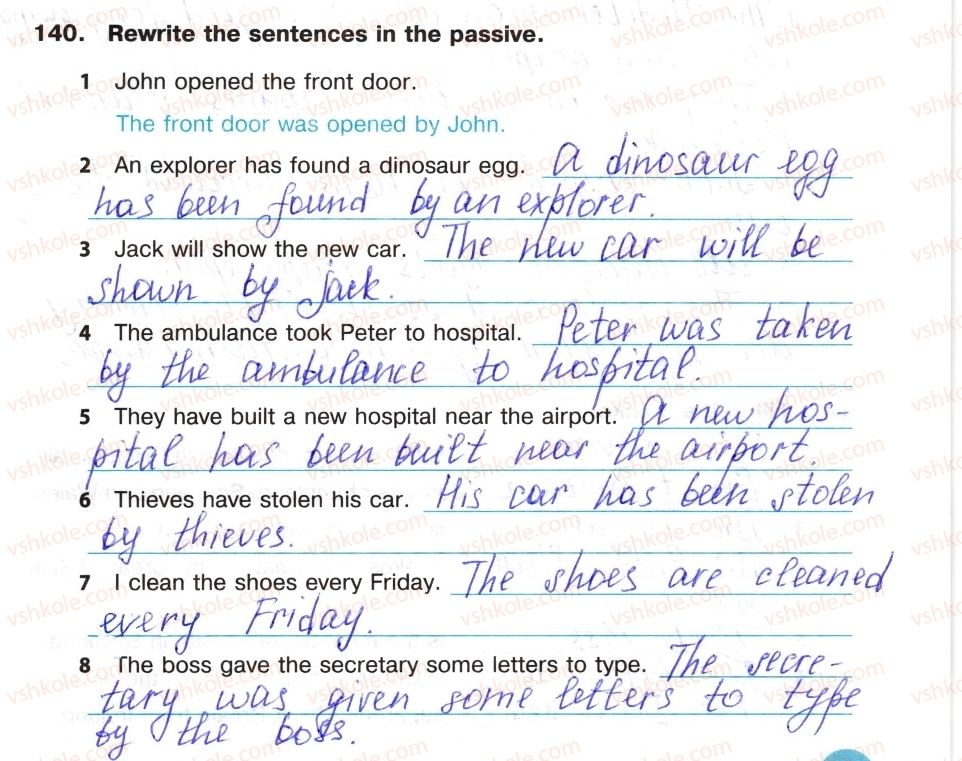 140. Rewrite the sentences in the passive.
1 John opened the front door.
The front door was opened by John.
2 An explorer has found a dinosaur egg. A dinosaur egg
has been found by an explorer.
3 Jack will show the new car. The new car will be
shown by jack.
4 The ambulance took Peter to hospital. Peter was taken
by the ambulance to hospital.
5 They have built a new hospital near the airport. A new hos-
pital has been built near the airport.
6 Thieves have stolen his car. His car has been stolen
by thieves.
7 I clean the shoes every Friday. The shoes are cleaned
every Friday.
8 The boss gave the secretary some letters to type. The secre-
tary was given some letters to type
by the boss.
vshkole.com